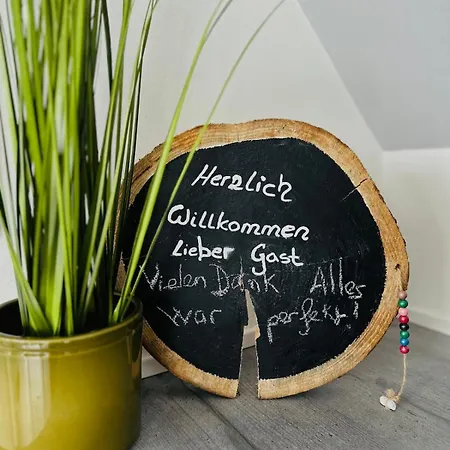 Herzlich
Willkommen
Lieber Gast
Vielen Dank Alles
war perfekt!